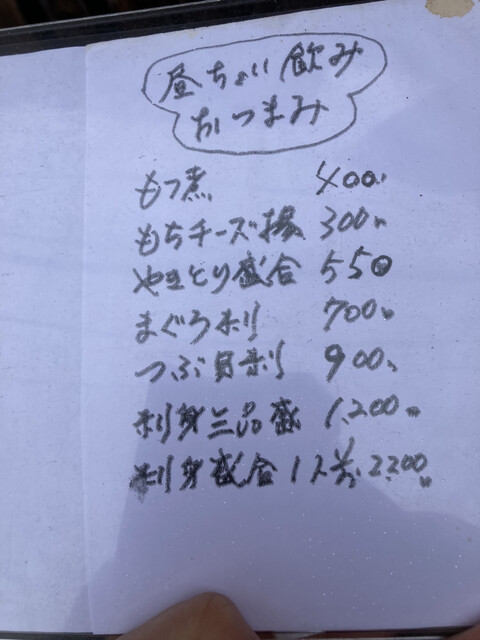 昼ちょい飲み
おつまみ
もつ煮 400
もちチーズ揚 300
やきとり盛合 550
まぐろ刺 700
つぶ貝刺 900
刺身三品盛 1,200
刺身盛合1人前 2200